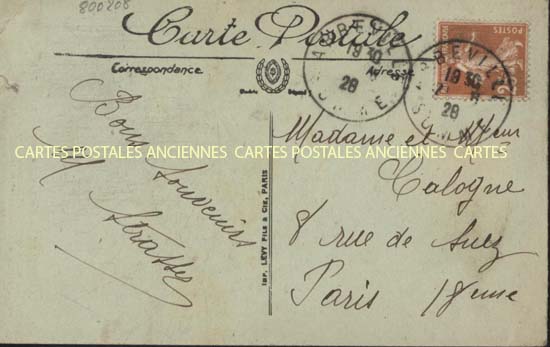 800208
Carte Postale
Correspondance
Adresse
ABBEVILLE
19 30
28
SOMME
ABBEVILLE
19 30
28
SOMME
POSTES
Bons Souvenirs
M Strasser
IMP. LEVY FILS & CIE, PARIS
Madame et Mr
Calogne
8 rue de Suez
Paris 18eme
CARTES POSTALES ANCIENNES CARTES POSTALES ANCIENNES CARTES